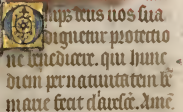 Ohips deus uos sua
dignetur protectio
ne benedicere. qui hunc
diem per natiuitatem be
marie fecit clarescere. Ame